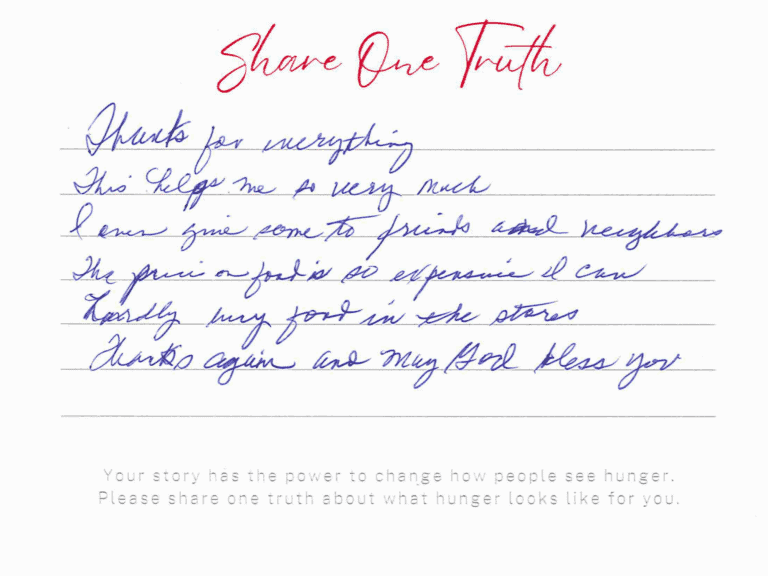 Share One Truth
Thanks for everything
This helps me so very much
I even give some to friends and neighbors
The price on food is so expensive I can
hardly buy food in the stores
Thanks again and may God bless you
Your story has the power to change how people see hunger.
Please share one truth about what hunger looks like for you.